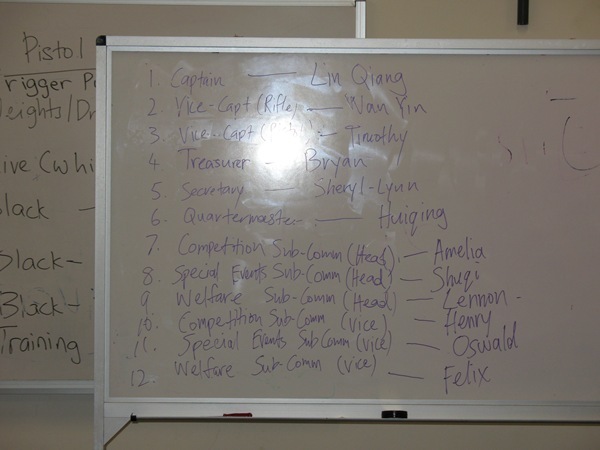 Pistol
Trigger
Black
Black-
Black-
Training
1. Captain — Lin Qiang
2. Vice-Capt (Rifle) — Wan Yin
3. Vice-Capt (Pistol) — Timothy
4 Treasurer — Bryan
5 Secretary — Sheryl-Lynn
6. Quartermaster — Huiqing
7. Competition Sub-Comm (Head) — Amelia
8. Special Events Sub-Comm (Head) — Shuqi
9 Welfare Sub-Comm (Head) — Lennon -
10. Competition Sub-Comm (Vice) — Henry
11. Special Events Sub-Comm (Vice) — Oswald
12. Welfare Sub-Comm (Vice) — Felix